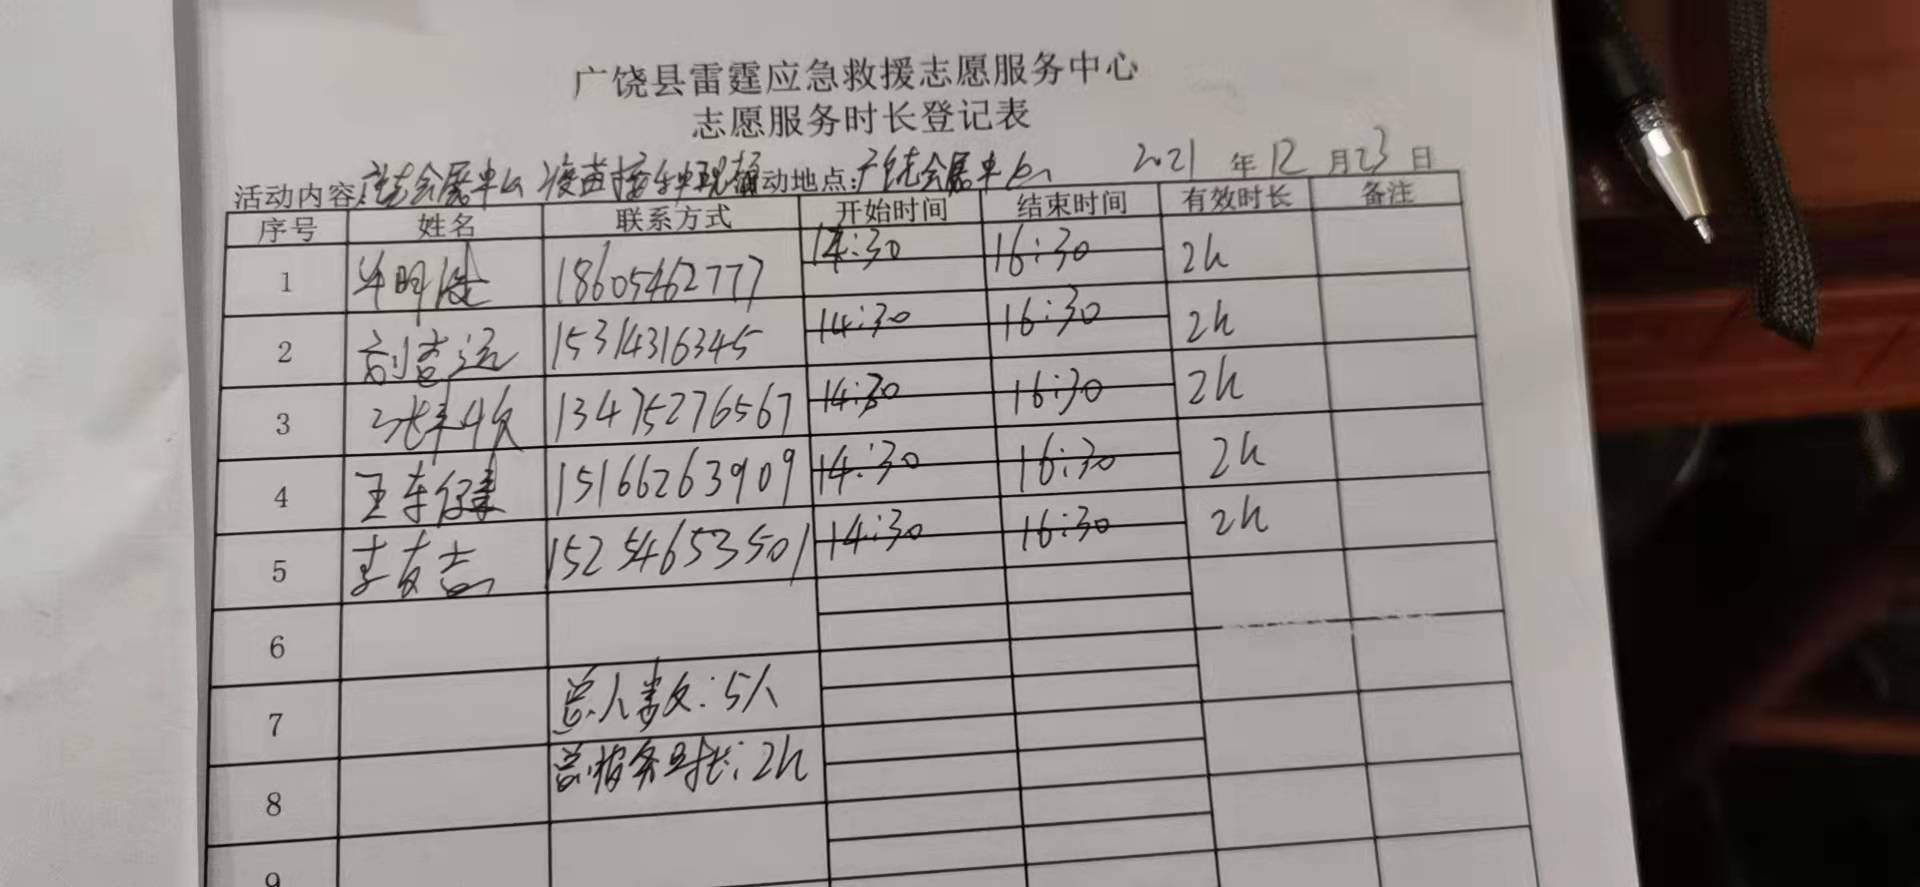 广饶县雷霆应急救援志愿服务中心
志愿服务时长登记表
活动内容:广饶会展中心 疫苗接种现场 活动地点:广饶会展中心 2021年12月23日
序号 姓名 联系方式 开始时间 结束时间 有效时长 备注
1 18605462777 14:30 16:30 2h
2 15314316345 14:30 16:30 2h
3 13475276567 14:30 16:30 2h
4 王 15166263909 14:30 16:30 2h
5 李友志 15254653501 14:30 16:30 2h
6
7 总人数:5人
8 总服务时长:2h
9